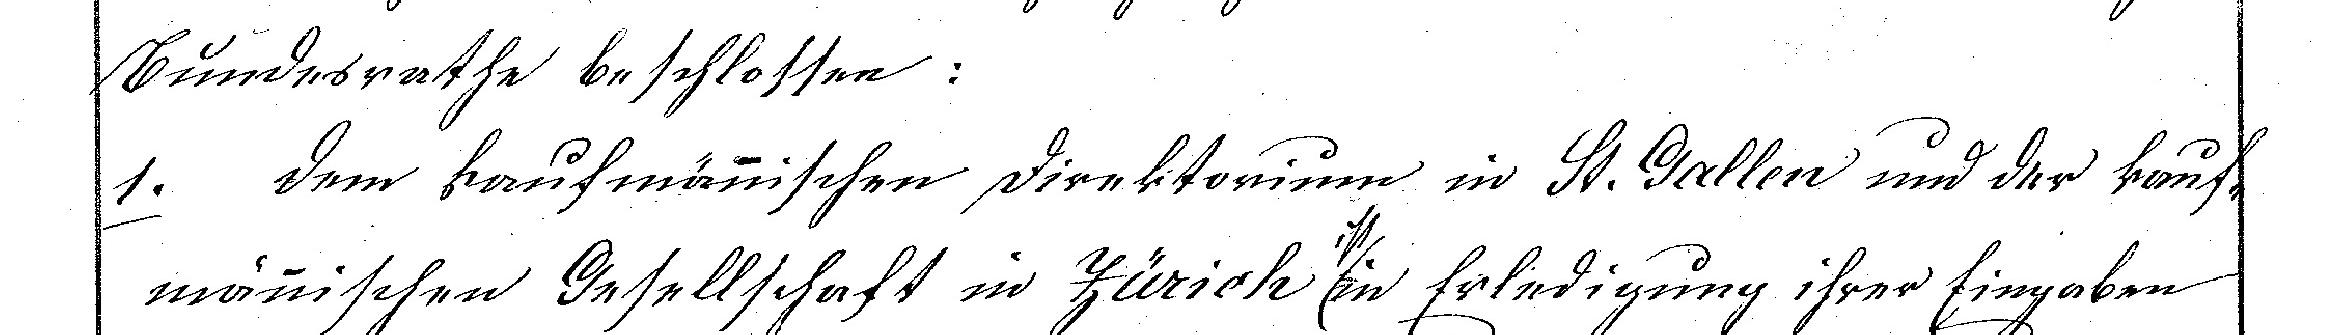 Bundesrathe beschlossen:
1. Dem kaufmän̅ischen Direktorium in St. Gallen und der kauf-
män̅ischen Gesellschaft in Zürich ist in Erledigung ihrer Eingaben